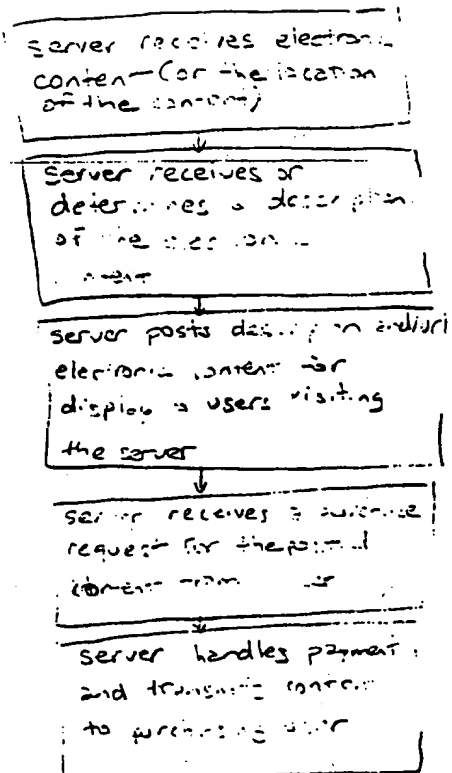 server receives electronic
content (or the location
of the content)
server receives or
determines a description
of the electronic
content
server posts description and/or
electronic content for
display to users visiting
the server
server receives a purchase
request for the posted
content from user
server handles payment
and transmits content
to purchasing user